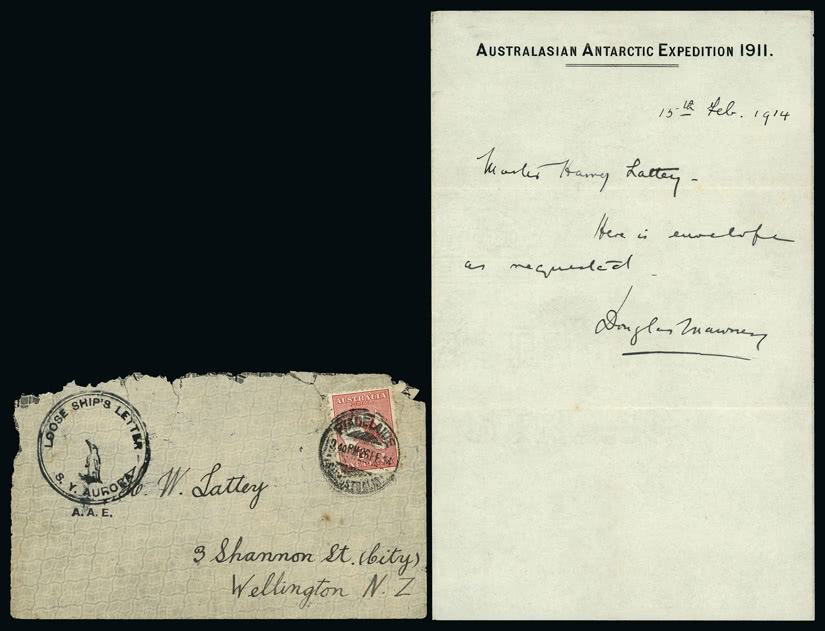 AUSTRALASIAN ANTARCTIC EXPEDITION 1911.
15th Feb. 1914
Master Harry Lattey –
Here is envelope
as requested
Douglas Mawson
LOOSE SHIP'S LETTER
S.Y. AURORA
A.A.E.
AUSTRALIA
ADELAIDE
H. W. Lattey
3 Shannon St. (City)
Wellington N. Z